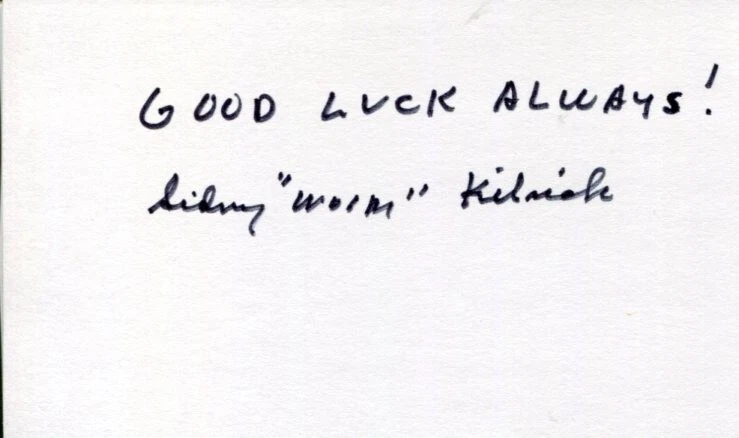 GOOD LUCK ALWAYS!
Sidney "Woim" Kibrick